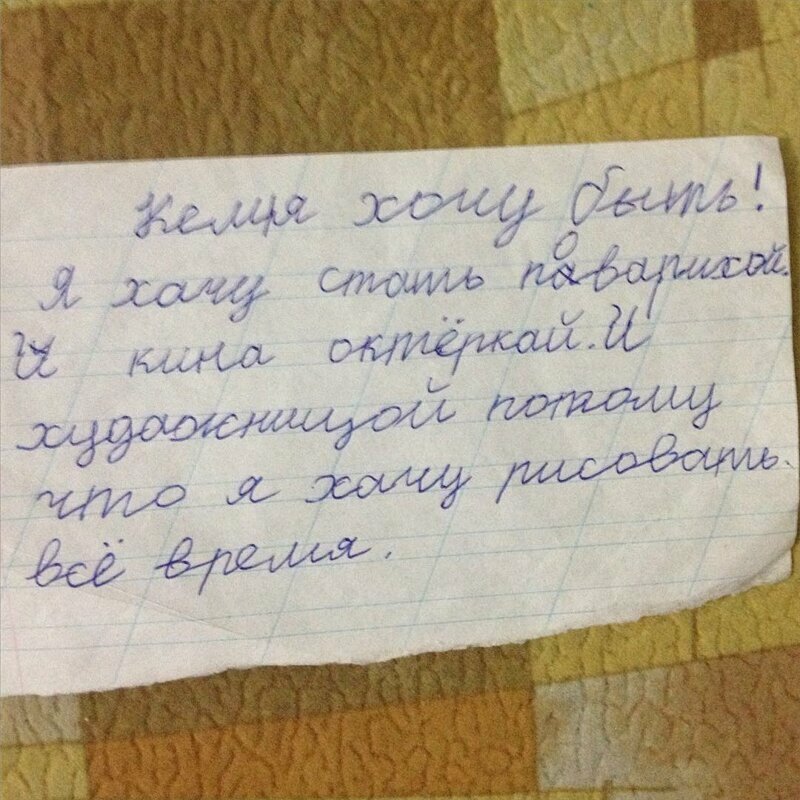 Кемя хочу быть!
Я хачу стать поварихай.
И кина октёркай. И
художницой потому
что я хачу рисовать.
всё время.